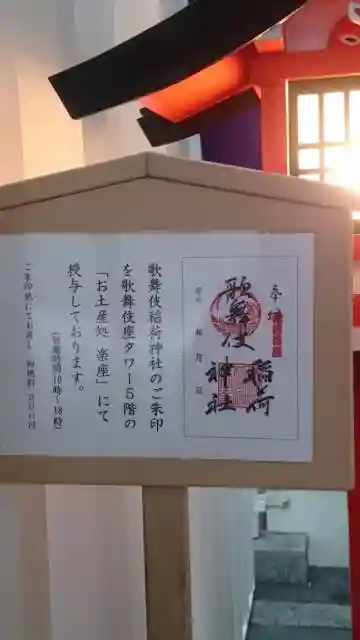 奉拝
歌舞伎
稲荷
神社
年
月
日
歌舞伎稲荷神社のご朱印
を歌舞伎座タワー5階の
「お土産処 楽座」にて
授与しております。
(営業時間10時~18時)
ご朱印紙にてお渡し 初穂料